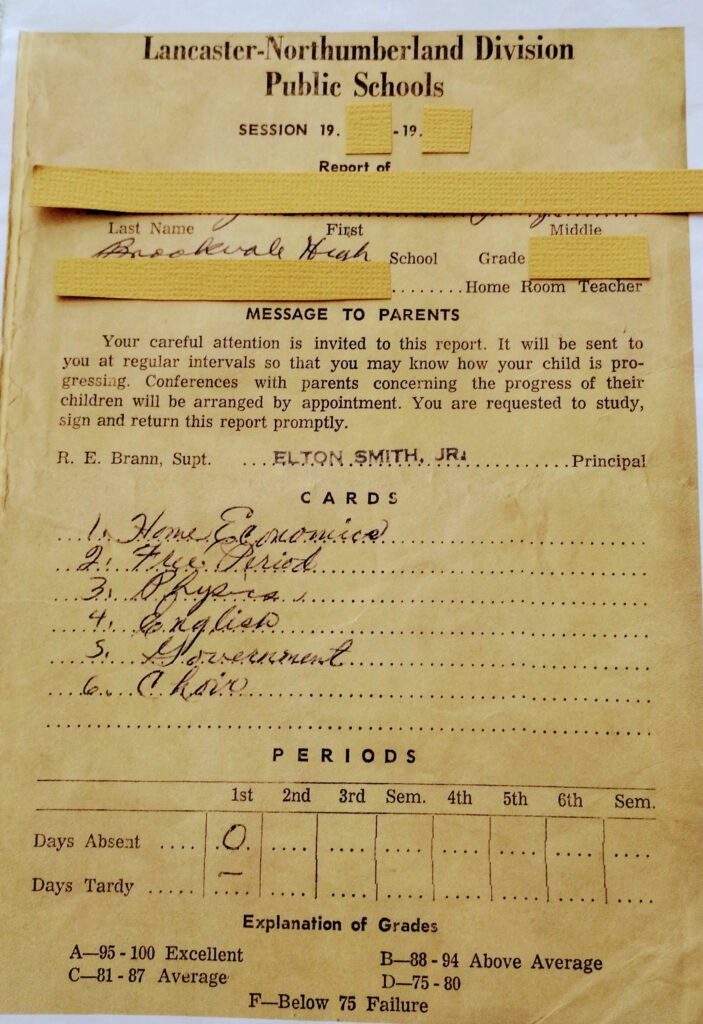 Lancaster-Northumberland Division
Public Schools
SESSION 19. -19.
Report of
Last Name First Middle
Brookvale High School Grade
........Home Room Teacher
MESSAGE TO PARENTS
Your careful attention is invited to this report. It will be sent to
you at regular intervals so that you may know how your child is pro-
gressing. Conferences with parents concerning the progress of their
children will be arranged by appointment. You are requested to study,
sign and return this report promptly.
R. E. Brann, Supt. ...ELTON SMITH, JR. ............Principal
CARDS
1. Home Economics
2. Free Period
3. Physics
4. English
5. Government
6. Choir
PERIODS
1st 2nd 3rd Sem. 4th 5th 6th Sem.
Days Absent .... 0 .... .... .... .... .... .... ....
Days Tardy ..... – .... .... .... .... .... .... ....
Explanation of Grades
A—95 - 100 Excellent B—88 - 94 Above Average
C—81 - 87 Average D—75 - 80
F—Below 75 Failure